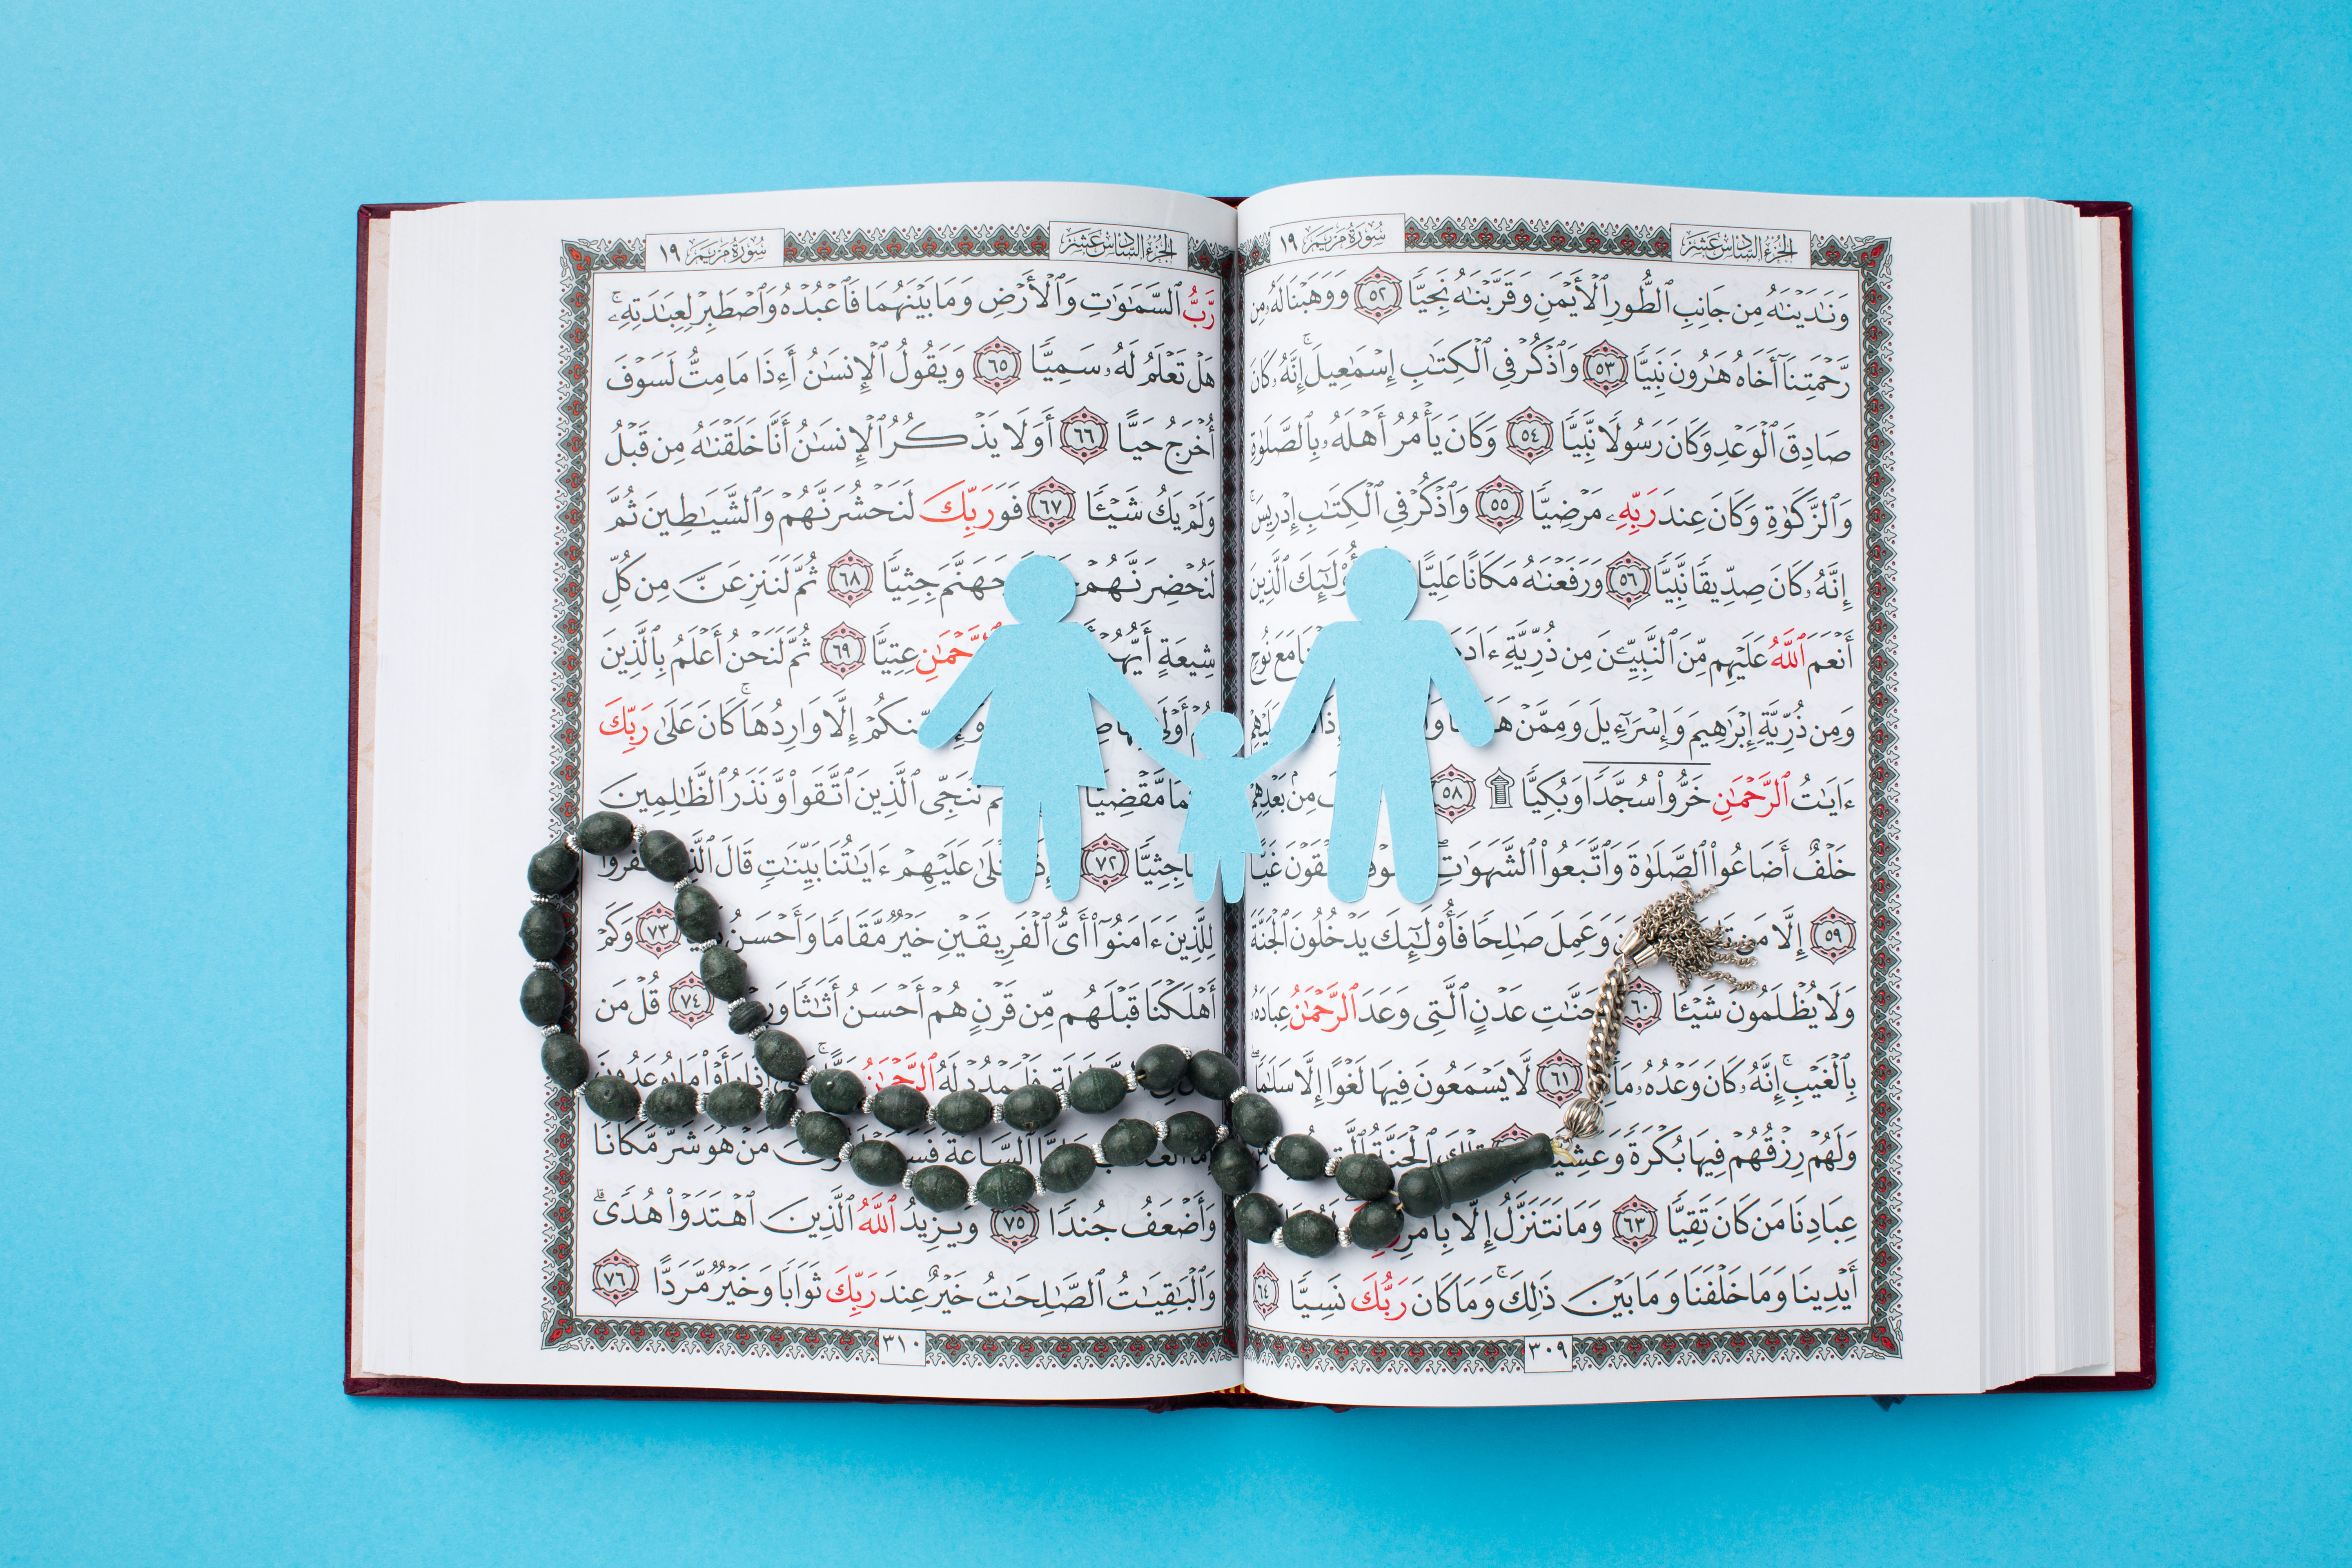 الجزء السادس عشر
سورة مريم ١٩
وَنَٰدَيْنَٰهُ مِن جَانِبِ ٱلطُّورِ ٱلْأَيْمَنِ وَقَرَّبْنَٰهُ نَجِيًّا ٥٢ وَوَهَبْنَا لَهُۥ مِن
رَّحْمَتِنَآ أَخَاهُ هَٰرُونَ نَبِيًّا ٥٣ وَٱذْكُرْ فِى ٱلْكِتَٰبِ إِسْمَٰعِيلَ ۚ إِنَّهُۥ كَانَ
صَادِقَ ٱلْوَعْدِ وَكَانَ رَسُولًا نَّبِيًّا ٥٤ وَكَانَ يَأْمُرُ أَهْلَهُۥ بِٱلصَّلَوٰةِ
وَٱلزَّكَوٰةِ وَكَانَ عِندَ رَبِّهِۦ مَرْضِيًّا ٥٥ وَٱذْكُرْ فِى ٱلْكِتَٰبِ إِدْرِيسَ ۚ
إِنَّهُۥ كَانَ صِدِّيقًا نَّبِيًّا ٥٦ وَرَفَعْنَٰهُ مَكَانًا عَلِيًّا أُو۟لَٰٓئِكَ ٱلَّذِينَ
أَنْعَمَ ٱللَّهُ عَلَيْهِم مِّنَ ٱلنَّبِيِّۦنَ مِن ذُرِّيَّةِ مَعَ نُوحٍ
وَمِن ذُرِّيَّةِ إِبْرَٰهِيمَ وَإِسْرَٰٓءِيلَ وَمِمَّنْ عَلَيْهِمْ
ءَايَٰتُ ٱلرَّحْمَٰنِ خَرُّوا۟ سُجَّدًا وَبُكِيًّا ۩ ٥٨ مِنۢ بَعْدِهِمْ
خَلْفٌ أَضَاعُوا۟ ٱلصَّلَوٰةَ وَٱتَّبَعُوا۟ ٱلشَّهَوَٰتِ ۖ غَيًّا
٥٩ إِلَّا مَن وَعَمِلَ صَٰلِحًا فَأُو۟لَٰٓئِكَ يَدْخُلُونَ ٱلْجَنَّةَ
وَلَا يُظْلَمُونَ شَيْـًٔا ٦٠ جَنَّٰتِ عَدْنٍ ٱلَّتِى وَعَدَ ٱلرَّحْمَٰنُ عِبَادَهُۥ
بِٱلْغَيْبِ ۚ إِنَّهُۥ كَانَ وَعْدُهُۥ ٦١ لَّا يَسْمَعُونَ فِيهَا لَغْوًا إِلَّا سَلَٰمًا ۖ
وَلَهُمْ رِزْقُهُمْ فِيهَا بُكْرَةً وَعَشِيًّا ٱلْجَنَّةُ
عِبَادِنَا مَن كَانَ تَقِيًّا ٦٣ وَمَا نَتَنَزَّلُ إِلَّا بِأَمْرِ
أَيْدِينَا وَمَا خَلْفَنَا وَمَا بَيْنَ ذَٰلِكَ ۚ وَمَا كَانَ رَبُّكَ نَسِيًّا ٦٤
٣٠٩
الجزء السادس عشر
سورة مريم ١٩
رَّبُّ ٱلسَّمَٰوَٰتِ وَٱلْأَرْضِ وَمَا بَيْنَهُمَا فَٱعْبُدْهُ وَٱصْطَبِرْ لِعِبَٰدَتِهِۦ ۚ
هَلْ تَعْلَمُ لَهُۥ سَمِيًّا ٦٥ وَيَقُولُ ٱلْإِنسَٰنُ أَءِذَا مَا مِتُّ لَسَوْفَ
أُخْرَجُ حَيًّا ٦٦ أَوَلَا يَذْكُرُ ٱلْإِنسَٰنُ أَنَّا خَلَقْنَٰهُ مِن قَبْلُ
وَلَمْ يَكُ شَيْـًٔا ٦٧ فَوَرَبِّكَ لَنَحْشُرَنَّهُمْ وَٱلشَّيَٰطِينَ ثُمَّ
لَنُحْضِرَنَّهُمْ جَهَنَّمَ جِثِيًّا ٦٨ ثُمَّ لَنَنزِعَنَّ مِن كُلِّ
شِيعَةٍ أَيُّهُمْ ٱلرَّحْمَٰنِ عِتِيًّا ٦٩ ثُمَّ لَنَحْنُ أَعْلَمُ بِٱلَّذِينَ
هُمْ أَوْلَىٰ مِّنكُمْ إِلَّا وَارِدُهَا ۚ كَانَ عَلَىٰ رَبِّكَ
مَّقْضِيًّا نُنَجِّى ٱلَّذِينَ ٱتَّقَوا۟ وَّنَذَرُ ٱلظَّٰلِمِينَ
جِثِيًّا ٧٢ عَلَيْهِمْ ءَايَٰتُنَا بَيِّنَٰتٍ قَالَ كَفَرُوا۟
لِلَّذِينَ ءَامَنُوٓا۟ أَىُّ ٱلْفَرِيقَيْنِ خَيْرٌ مَّقَامًا وَأَحْسَنُ ٧٣ وَكَمْ
أَهْلَكْنَا قَبْلَهُم مِّن قَرْنٍ هُمْ أَحْسَنُ أَثَٰثًا ٧٤ قُلْ مَن
فَلْيَمْدُدْ لَهُ ٱلرَّحْمَٰنُ رَأَوْا۟ مَا يُوعَدُونَ
ٱلسَّاعَةَ مَنْ هُوَ شَرٌّ مَّكَانًا
وَأَضْعَفُ جُندًا ٧٥ وَيَزِيدُ ٱللَّهُ ٱلَّذِينَ ٱهْتَدَوْا۟ هُدًى ۗ
وَٱلْبَٰقِيَٰتُ ٱلصَّٰلِحَٰتُ خَيْرٌ عِندَ رَبِّكَ ثَوَابًا وَخَيْرٌ مَّرَدًّا ٧٦
٣١٠